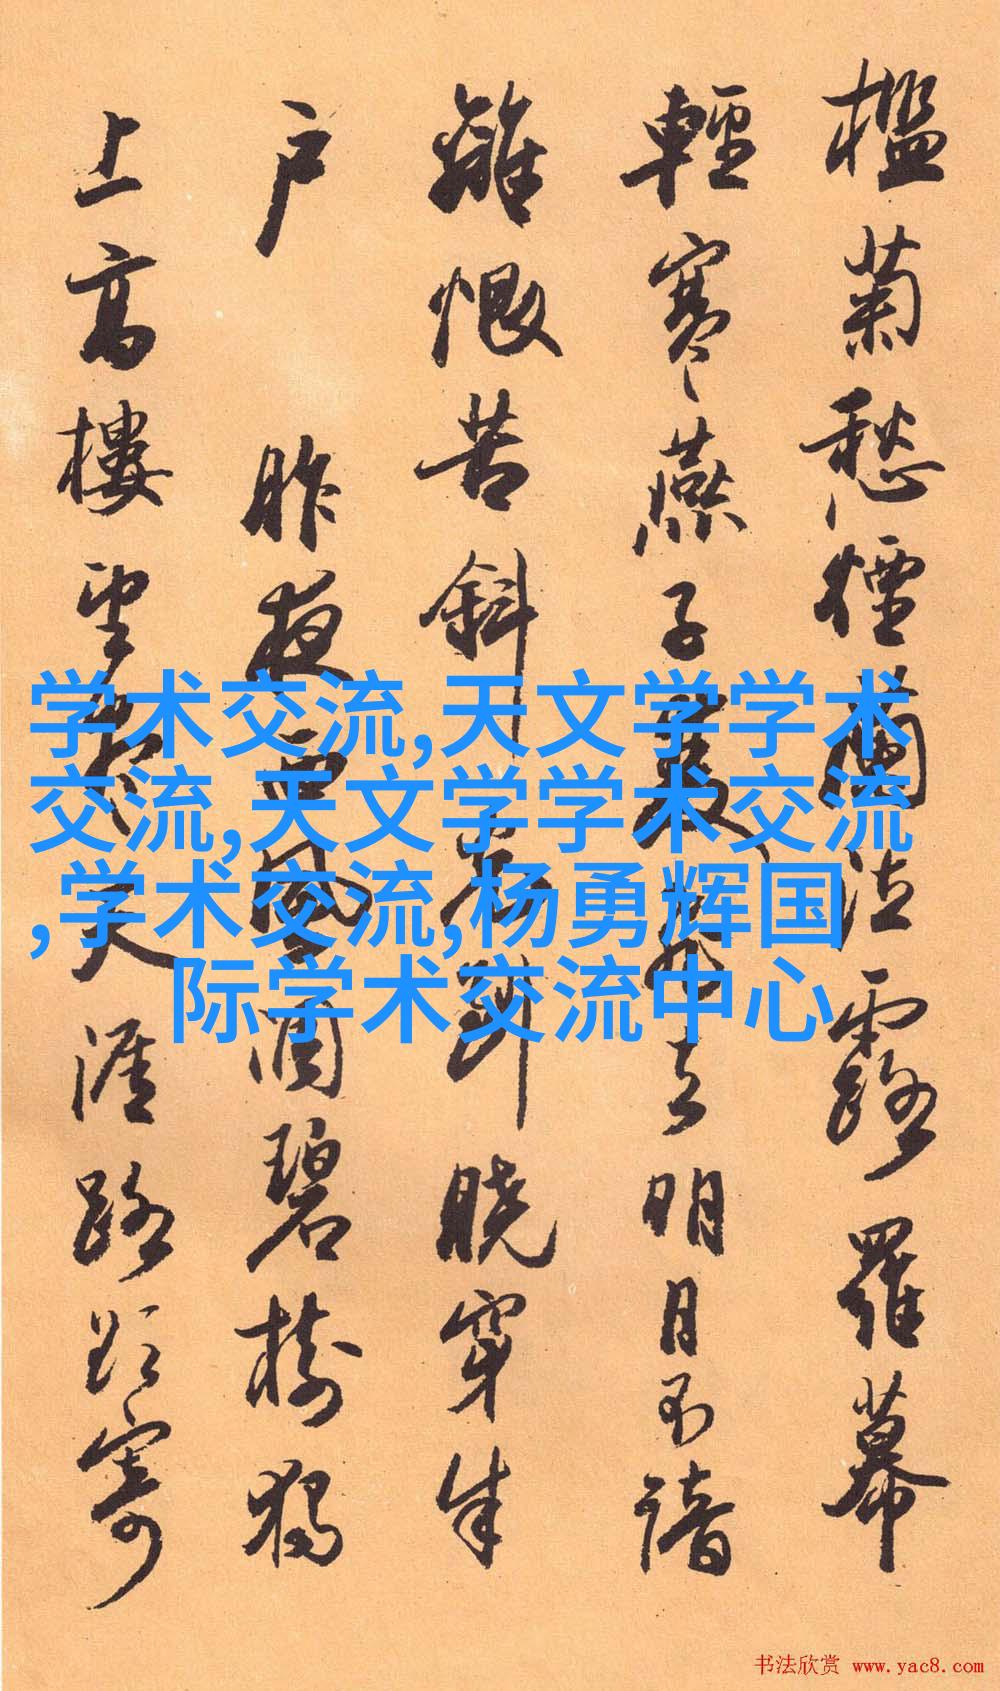 檻菊愁煙蘭泣露羅幕
輕寒燕子雙飛去明月不諳
離恨苦斜光到曉穿朱
户 昨夜西風凋碧樹獨
上高樓望盡天涯路欲寄
学术交流,天文学学术
交流,天文学学术交流
,学术交流,杨勇辉国
际学术交流中心
书法欣赏 www.yac8.com